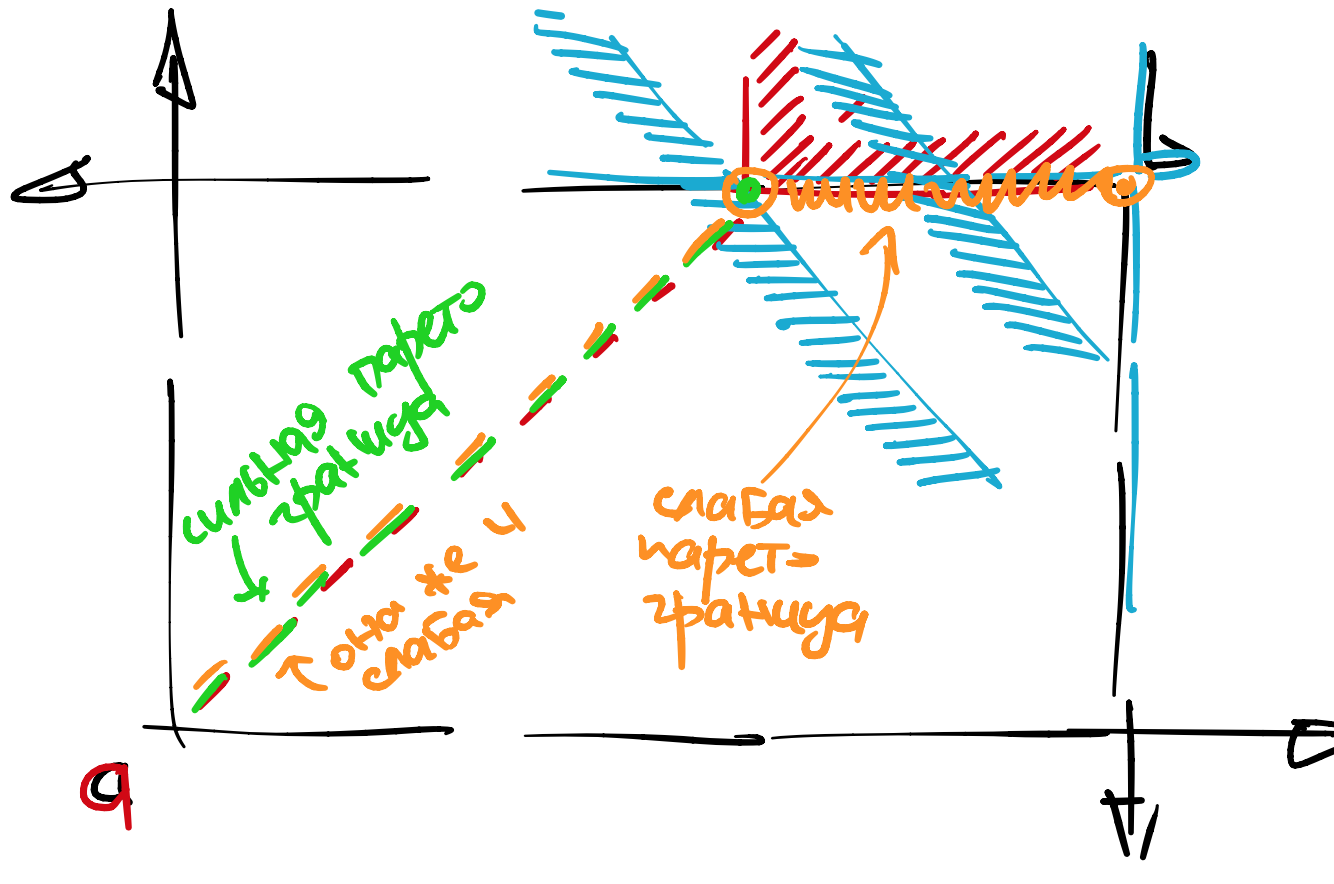 сильная парето
граница
она же и
слабая
слабая
парето
граница